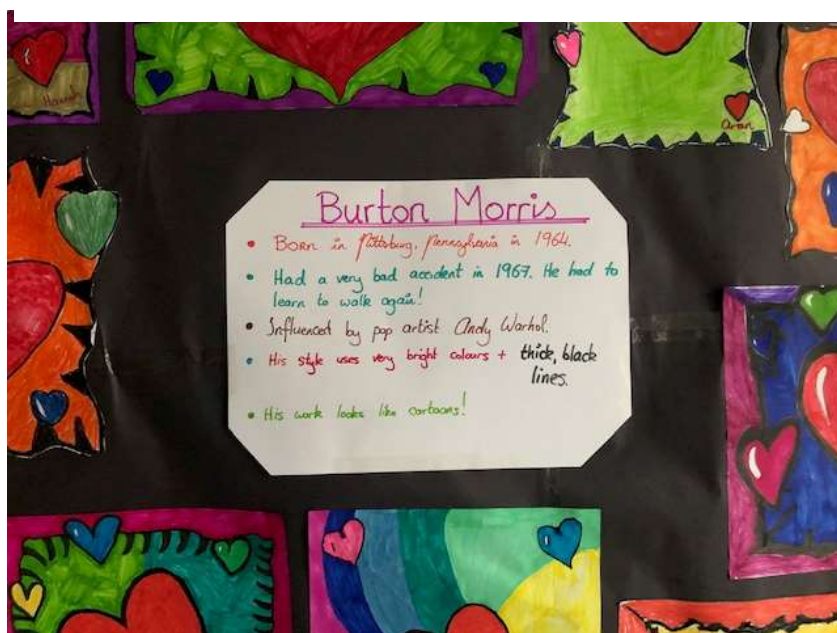 Hannah
Aran
Burton Morris
• Born in Pittsburg, Pennsylvania in 1964.
• Had a very bad accident in 1967. He had to
learn to walk again!
• Influenced by pop artist Andy Warhol.
• His style uses very bright colours + thick, black
lines.
• His work looks like cartoons!